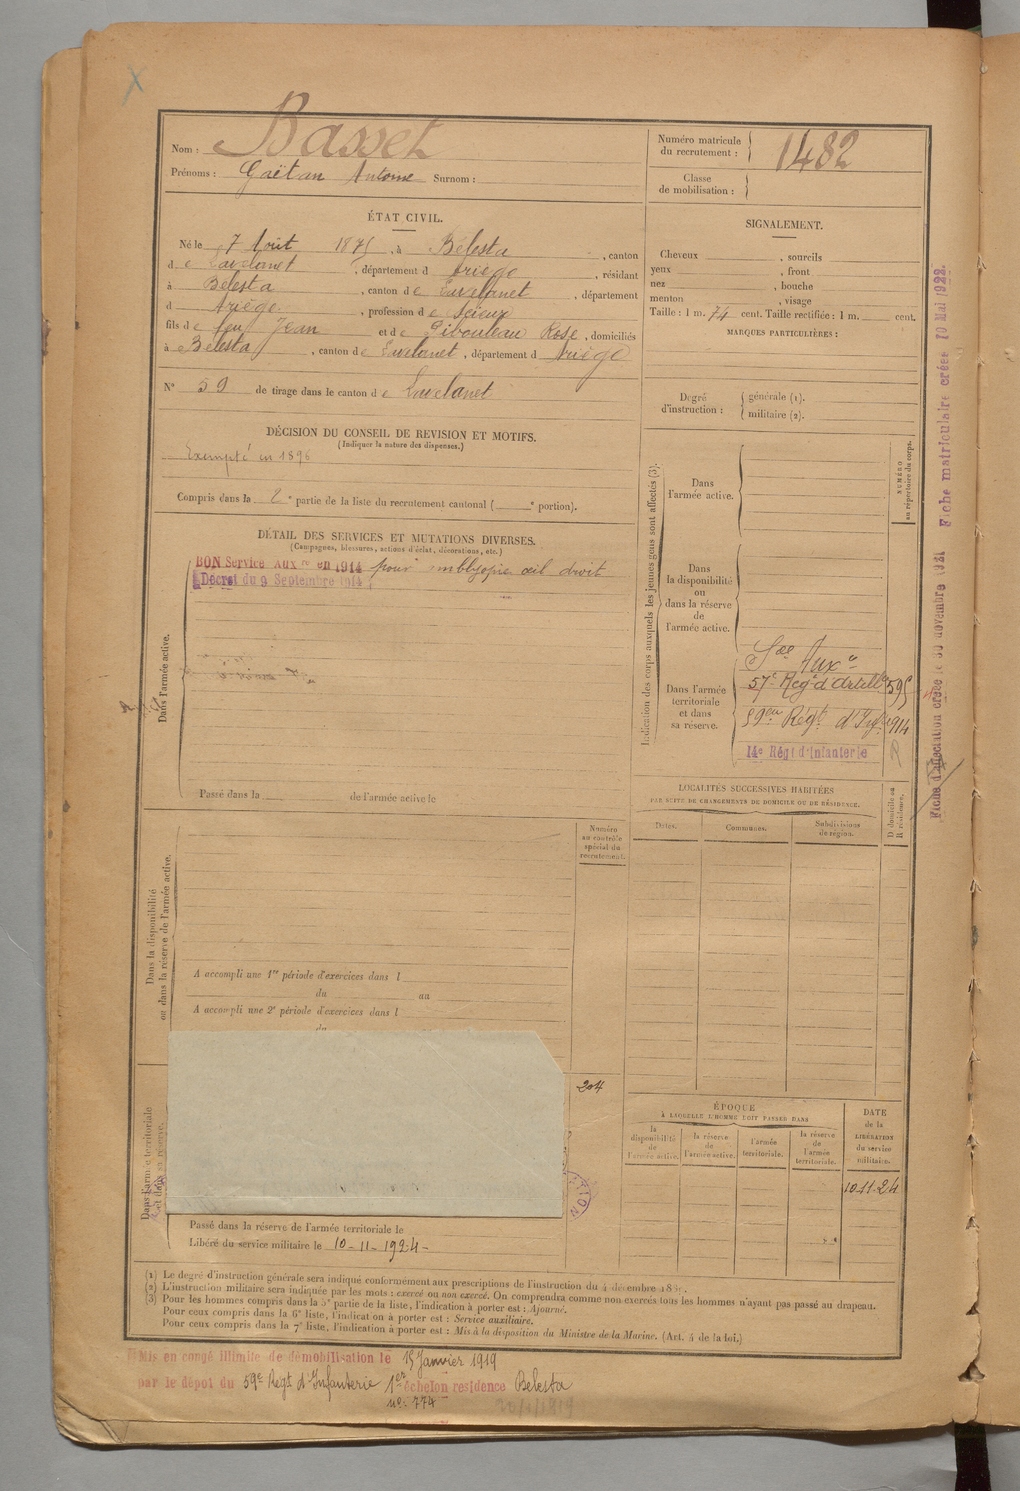 Nom : Basset
Prénoms : Gaëtan Antoine Surnom :
Numéro matricule du recrutement : 1482
Classe de mobilisation :
ÉTAT CIVIL.
Né le 7 Août 1875, à Bélesta, canton
de Lavelanet, département d Ariège, résidant
à Bélesta, canton de Lavelanet, département
d Ariège, profession de Scieur
fils de feu Jean et de Gibouleau Rose, domiciliés
à Bélesta, canton de Lavelanet, département d Ariège
N° 59 de tirage dans le canton de Lavelanet
SIGNALEMENT.
Cheveux , sourcils
yeux , front
nez , bouche
menton , visage
Taille : 1 m. 74 cent. Taille rectifiée : 1 m. cent.
MARQUES PARTICULIÈRES :
Degré d'instruction :
générale (1).
militaire (2).
DÉCISION DU CONSEIL DE REVISION ET MOTIFS.
(Indiquer la nature des dispenses.)
Exempté en 1896
Compris dans la 2e partie de la liste du recrutement cantonal ( e portion).
DÉTAIL DES SERVICES ET MUTATIONS DIVERSES.
(Campagnes, blessures, actions d'éclat, décorations, etc.)
BON Service Auxre en 1914 pour amblyopie œil droit
Décret du 9 Septembre 1914
Dans l'armée active.
Passé dans la de l'armée active le
Indication des corps auxquels les jeunes gens sont affectés (3).
NUMÉRO au répertoire du corps.
Dans l'armée active.
Dans la disponibilité ou dans la réserve de l'armée active.
Dans l'armée territoriale et dans sa réserve.
Sce Auxre
57e Regt d'Artillie 595
59eme Régt d'Infie 914
14e Régt d'Infanterie R
LOCALITÉS SUCCESSIVES HABITÉES
PAR SUITE DE CHANGEMENTS DE DOMICILE OU DE RÉSIDENCE.
Dates. Communes. Subdivisions de région.
D domicile ou R résidence.
Numéro au contrôle spécial du recrutement.
Dans la disponibilité ou dans la réserve de l'armée active.
A accompli une 1re période d'exercices dans l
du au
A accompli une 2e période d'exercices dans l
du
204
Dans l'armée territoriale et dans sa réserve.
Passé dans la réserve de l'armée territoriale le
Libéré du service militaire le 10-11-1924-
ÉPOQUE
À LAQUELLE L'HOMME DOIT PASSER DANS
la disponibilité de l'armée active.
la réserve de l'armée active.
l'armée territoriale.
la réserve de l'armée territoriale.
DATE de la LIBÉRATION du service militaire.
10-11-24
(1) Le degré d'instruction générale sera indiqué conformément aux prescriptions de l'instruction du 4 décembre 18
(2) L'instruction militaire sera indiquée par les mots : exercé ou non exercé. On comprendra comme non exercés tous les hommes n'ayant pas passé au drapeau.
(3) Pour les hommes compris dans la 5e partie de la liste, l'indication à porter est : Ajourné.
Pour ceux compris dans la 6e liste, l'indication à porter est : Service auxiliaire.
Pour ceux compris dans la 7e liste, l'indication à porter est : Mis à la disposition du Ministre de la Marine. (Art. 4 de la loi.)
Mis en congé illimité de démobilisation le 15 Janvier 1919
par le dépôt du 59e Regt d'Infanterie 1er échelon résidence Belesta
no. 774
20/1/1919
Fiche d'affectation créée le 30 novembre 1921 Fiche matriculaire créée 10 Mai 1922.